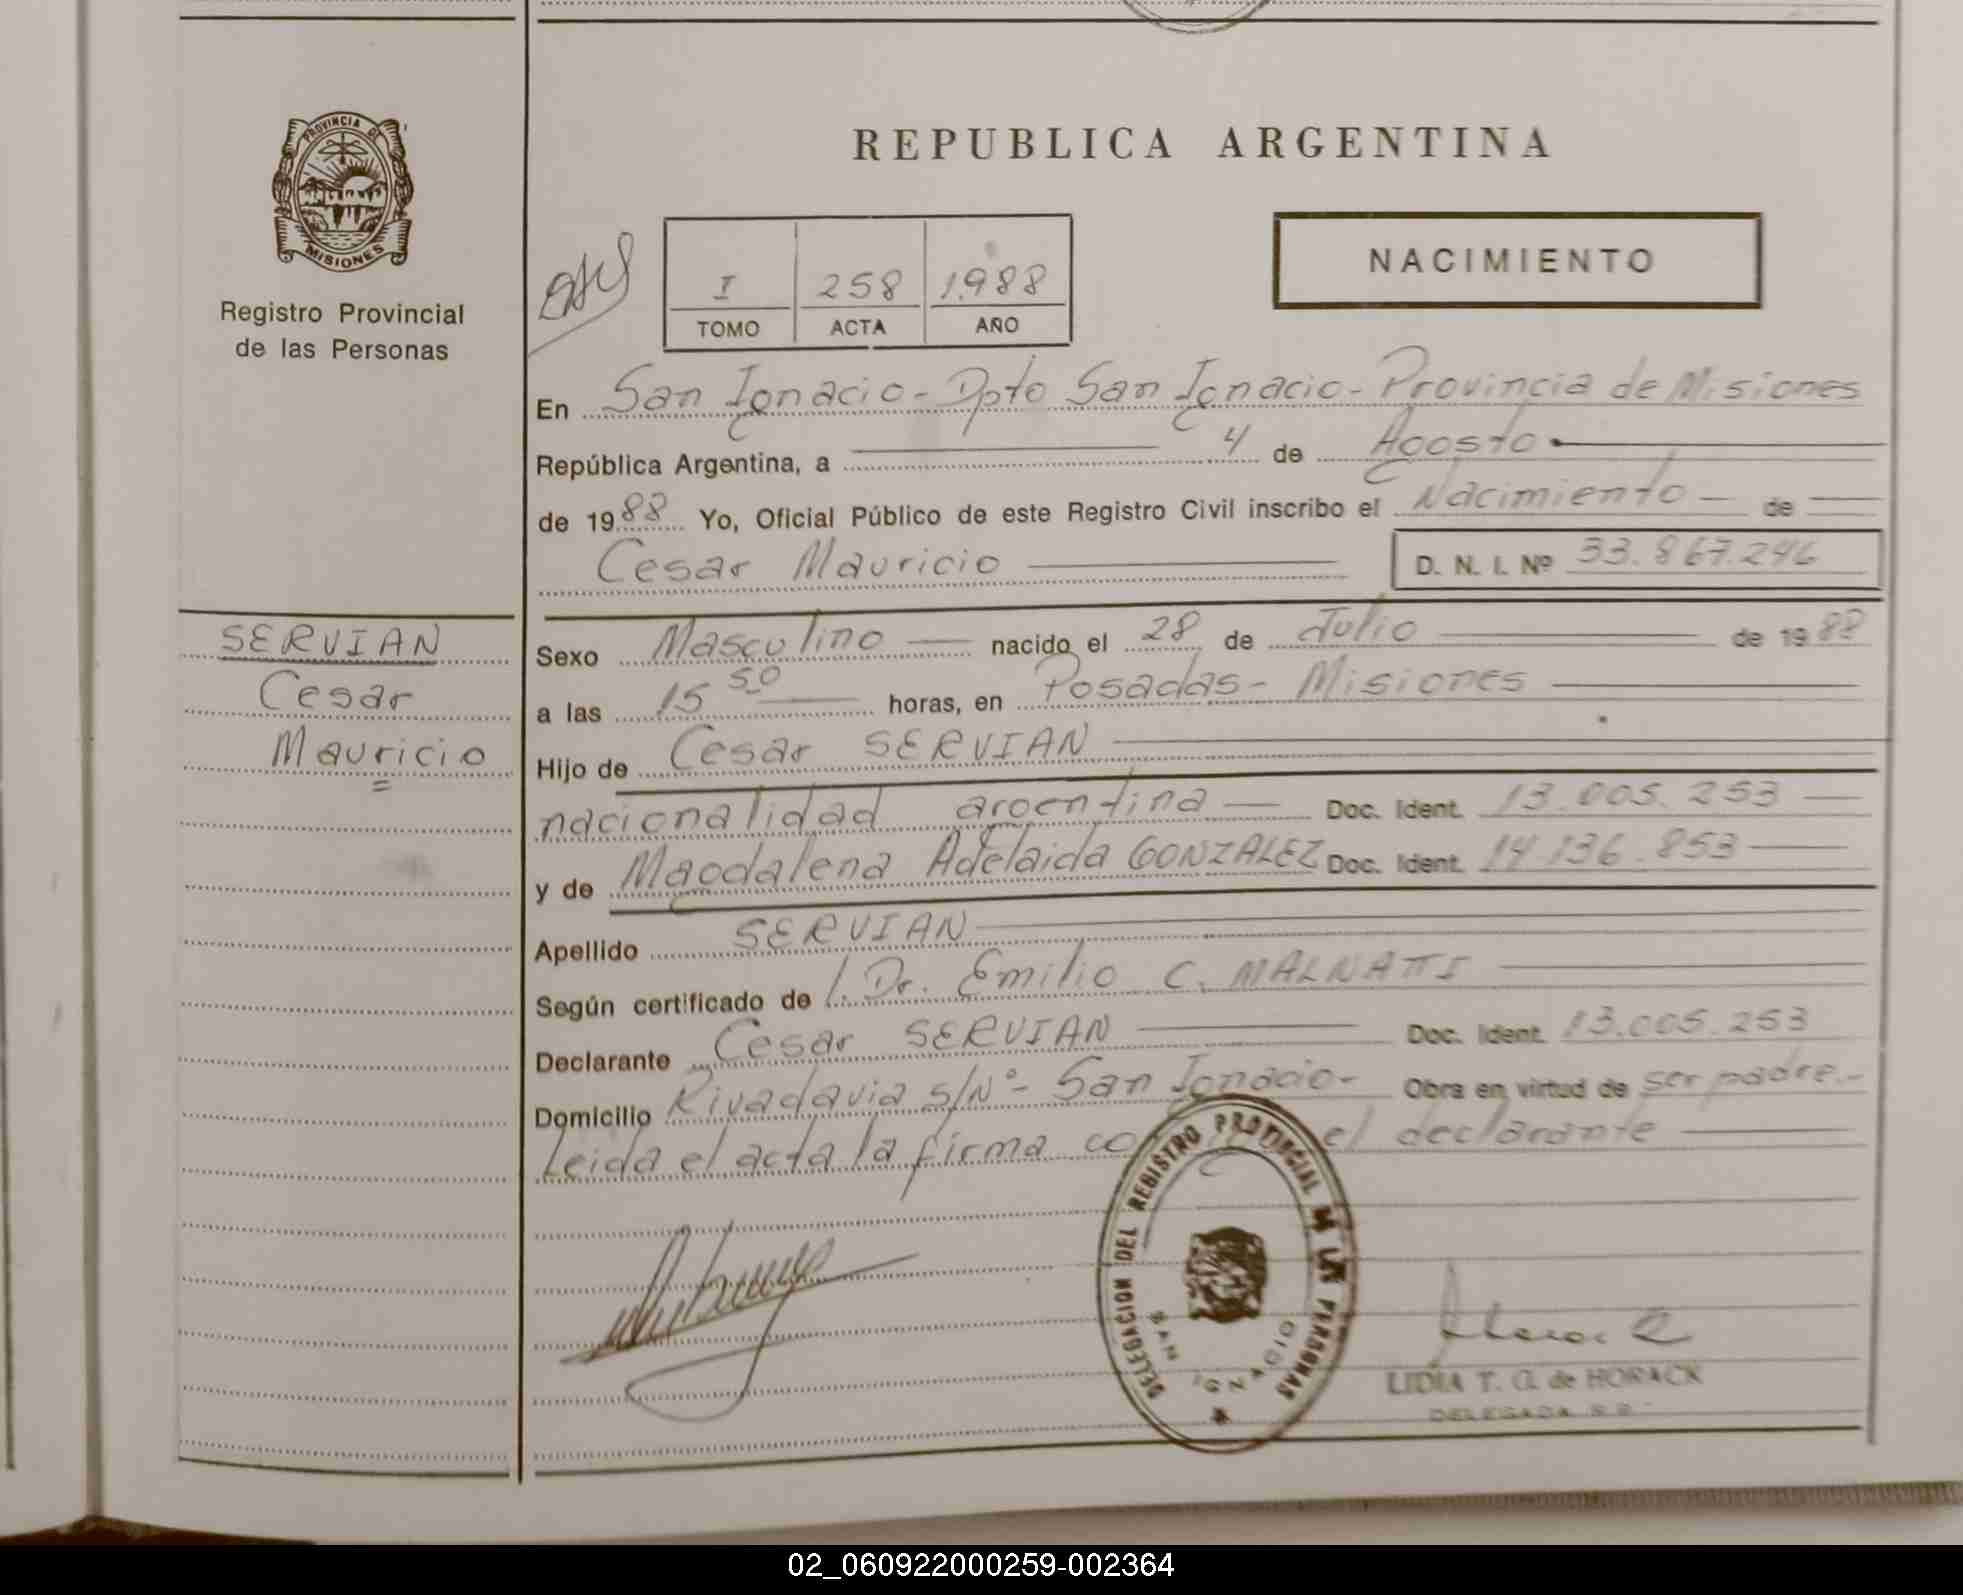 PROVINCIA DE
MISIONES
Registro Provincial
de las Personas
SERVIAN
Cesar
Mauricio
REPUBLICA ARGENTINA
I 258 1.988
TOMO ACTA AÑO
NACIMIENTO
En San Ignacio - Dpto San Ignacio - Provincia de Misiones
República Argentina, a 4 de Agosto
de 1988 Yo, Oficial Público de este Registro Civil inscribo el Nacimiento de
Cesar Mauricio D. N. I. Nº 33.867.246
Sexo Masculino nacido el 28 de Julio de 1988
a las 15 50 horas, en Posadas - Misiones
Hijo de Cesar SERVIAN
nacionalidad argentina Doc. Ident. 13.005.253
y de Magdalena Adelaida GONZALEZ Doc. Ident. 14.136.853
Apellido SERVIAN
Según certificado de l. Dr. Emilio C. MALNATTI
Declarante Cesar SERVIAN Doc. Ident. 13.005.253
Domicilio Rivadavia s/Nº - San Ignacio - Obra en virtud de ser padre.-
Leida el acta la firma co el declarante
DELEGACION DEL REGISTRO PROVINCIAL DE LAS PERSONAS
SAN IGNACIO
LIDIA T. G. de HORACK
DELEGADA R.P.
02_060922000259-002364